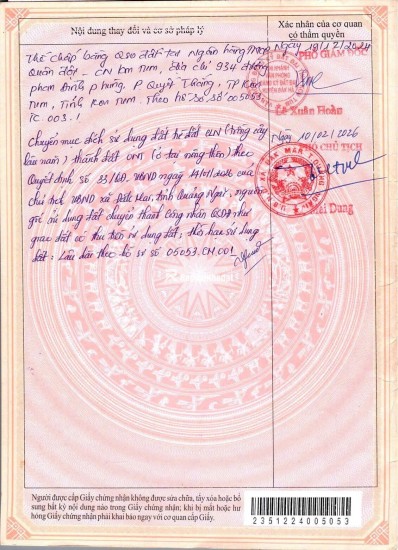 Nội dung thay đổi và cơ sở pháp lý
Xác nhận của cơ quan
có thẩm quyền
Thế chấp bằng QSD đất tại Ngân hàng TMCP
Quân đội - CN Kon Tum, Địa chỉ 934 đường
Phan Đình Phùng, P Quyết Thắng, TP Kon
Tum, Tỉnh Kon Tum. Theo hồ sơ số 005053.
TC 003./
Ngày 19/12/2024
PHÓ GIÁM ĐỐC
Lê Xuân Hoàn
Chuyển mục đích sử dụng đất từ đất CLN (trồng cây
lâu năm) thành đất ONT (ở tại nông thôn) theo
Quyết định số 33/QĐ-UBND ngày /01/2026 của
chủ tịch UBND xã Đăk Mar, Tỉnh Quảng Ngãi, nguồn
gốc sử dụng đất chuyển thành công nhận QSDĐ như
giao đất có thu tiền sử dụng đất, thời hạn sử dụng
đất: Lâu dài theo hồ sơ số 05053.CM.001
Ngày 10/02/2026
PHÓ CHỦ TỊCH
Dung
Người được cấp Giấy chứng nhận không được sửa chữa, tẩy xóa hoặc bổ
sung bất kỳ nội dung nào trong Giấy chứng nhận; khi bị mất hoặc hư
hỏng Giấy chứng nhận phải khai báo ngay với cơ quan cấp Giấy.
2351224005053